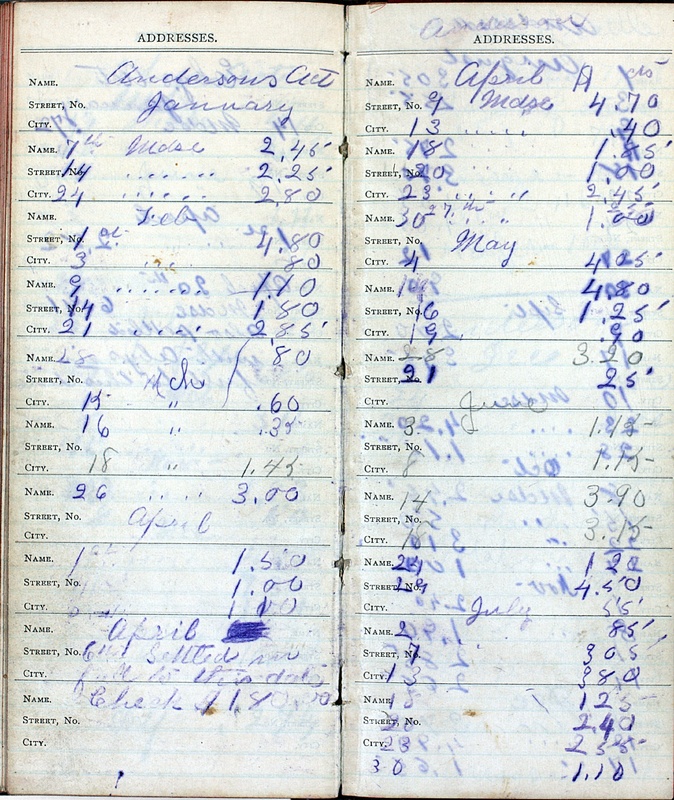 ADDRESSES.
NAME. Andersons Act
STREET, No. January
CITY.
NAME. 7th Mdse 2.45
STREET, No. 14 " " " " 2.25
CITY. 24 " " " " 2.80
NAME. Feb
STREET, No. 1st 4.80
CITY. 3 80
NAME. 9 " " " " 1.10
STREET, No. 14 1.80
CITY. 21 " " " " 2.85
NAME. 28 80
STREET, No. Mch
CITY. 15 " .60
NAME. 16 " .35
STREET, No.
CITY. 18 " 1.45
NAME. 26 " " " 3.00
STREET, No. April
CITY.
NAME. 1st 1.50
STREET, No. 1.00
CITY. 1.00
NAME. April
STREET, No. 6th Settled in
CITY. full to this date
NAME. Check
STREET, No.
CITY.
ADDRESSES.
NAME. April cts
STREET, No. 9 Mdse 4.70
CITY. 13 " " " " .40
NAME. 18 1.85
STREET, No. 20 1.00
CITY. 23 " " " " 2.45
NAME. 30 27th " " 1.00
STREET, No. May
CITY. 4 4.05
NAME. 4.80
STREET, No. 16 1.25
CITY. 19 .90
NAME. 28 3.20
STREET, No. 21 25
CITY. June
NAME. 3 1.15
STREET, No.
CITY. 8 1.15
NAME. 14 3.90
STREET, No.
CITY. 3.15
NAME. 24 1 20
STREET, No. 29 4.50
CITY. July 55
NAME. 2 85
STREET, No. 7 3 05
CITY. 13 3 80
NAME. 18 1 25
STREET, No. 20 2.40
CITY. 28 2 55
30 1.10